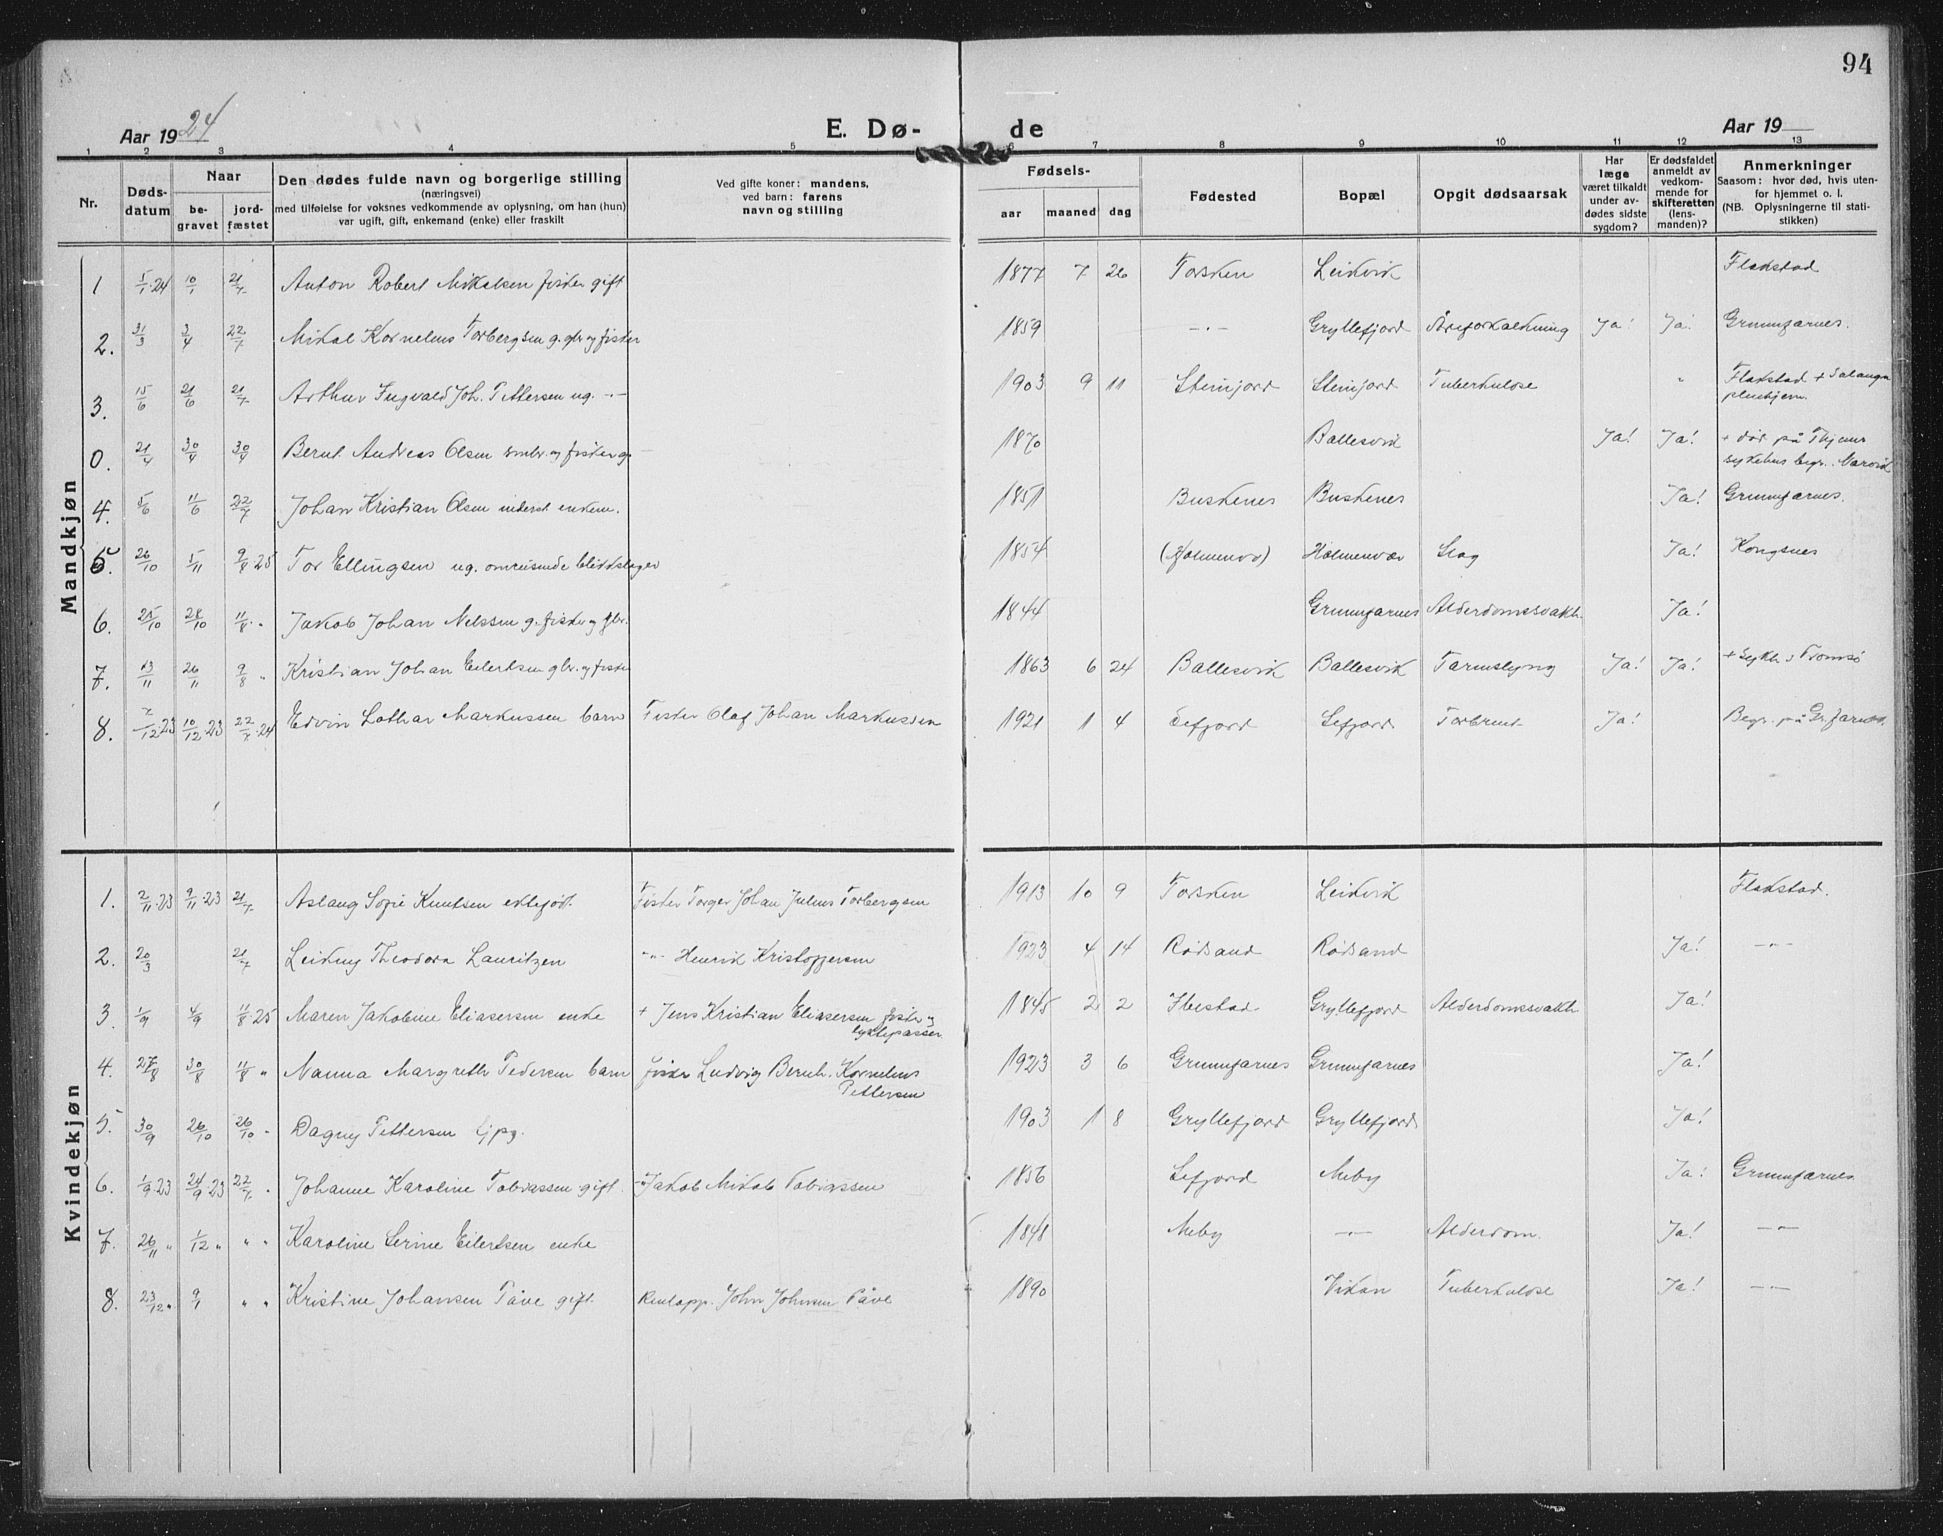 94
Aar 1924
E. Dø-
de
Aar 19
1 2 3 4 5 6 7 8 9 10 11 12 13
Nr.
Døds-
datum
Naar
be-
gravet
jord-
fæstet
Den dødes fulde navn og borgerlige stilling
(næringsvei)
med tilføielse for voksnes vedkommende av oplysning, om han (hun)
var ugift, gift, enkemand (enke) eller fraskilt
Ved gifte koner: mandens,
ved barn: farens
navn og stilling
Fødsels-
aar maaned dag
Fødested
Bopæl
Opgit dødsaarsak
Har
læge
været tilkaldt
under av-
dødes sidste
sygdom?
Er dødsfaldet
anmeldt av
vedkom-
mende for
skifteretten
(lens-
manden)?
Anmerkninger
Saasom: hvor død, hvis uten-
for hjemmet o. l.
(NB. Oplysningerne til stati-
stikken)
Mandkjøn
1 5/1 24 10/1 21/7 Anton Robert Mikalsen fisker gift 1877 7 26 Torsken Leikvik Flakstad
2. 31/3 3/4 22/7 Mikal Kornelius Torbergsen g. gbr. og fisker 1859 -"- Gryllefjord Åreforkalkning Ja! Ja! Grunnfarnes.
3. 15/6 21/6 21/7 Arthur Ingvald Joh. Pettersen ug. -"- 1903 9 11 Steinfjord Steinfjord Tuberkulose " Flakstad + Salangen
pleiehjem.
0. 21/4 30/4 30/4 Bernt Andreas Olsen smbr. og fisker g. 1870 Ballesvik Ja! Ja! + død på
sykehus begr. Narvik
4. 5/6 11/6 22/7 Johan Kristian Olsen inderst enkem. 1851 Buskenes Buskenes Ja! Grunnfarnes.
5. 26/10 5/11 9/8 25 Tor Ellingsen ug. omreisende blikkslager 1854 (Holmenvær) Holmenvær Slag Ja! Kongsnes
6. 25/10 28/10 11/8 " Jakob Johan Nelssen g. fisker og gbr. 1844 Grunnfarnes Alderdomssvakh. Ja!
7. 13/11 26/11 9/8 " Kristian Johan Eilertsen gbr. og fisker 1863 6 24 Ballesvik Ballesvik Tarmslyng Ja! Ja! + Sykh. i Tromsø
8. 7/12 23 10/12 23 22/7 24 Edvin Lothar Markussen barn Fisker Olaf Johan Markussen 1921 1 4 Sefjord Sefjord Forbrent Ja! Begr. på Gr.farnes.
Kvindekjøn
1. 2/11 23 9/11 23 21/7 Aslaug Sofie Knutsen ektefød. Fisker Torger Johan Julius Torbergsen 1913 10 9 Torsken Leikvik Flakstad.
2. 20/3 21/7 Leikny Theodora Lauritzen -"- Henrik Kristoffersen 1923 4 14 Rødsand Rødsand Ja! -"-
3. 1/9 4/9 11/8 25 Maren Jakobine Eliasersen enke + Jens Kristian Eliasersen fisker og
lyktepasser 1845 2 2 Ibestad Gryllefjord Alderdomssvakh. Ja!
4. 27/8 30/8 11/8 " Nanna Margreth Pedersen barn fisker Ludvig Bernh. Kornelius
Pettersen 1923 3 6 Grunnfarnes Grunnfarnes Ja!
5. 30/9 26/10 26/10 Dagny Pettersen tjpg. 1903 1 8 Gryllefjord Gryllefjord Ja!
6. 1/9 23 24/9 23 22/7 Johanne Karoline Tobiassen gift. Jakob Mikal Tobiassen 1856 Sefjord Meby Ja! Grunnfarnes.
7. 26/11 " 1/12 " " " Karoline Serine Eilertsen enke 1848 Meby -"- Alderdom. Ja! -"-
8. 23/12 " 9/1 " " Kristine Johansen Påve gift. Renlapp. John Johnsen Påve 1890 Vikan Tuberkulose Ja! -"-